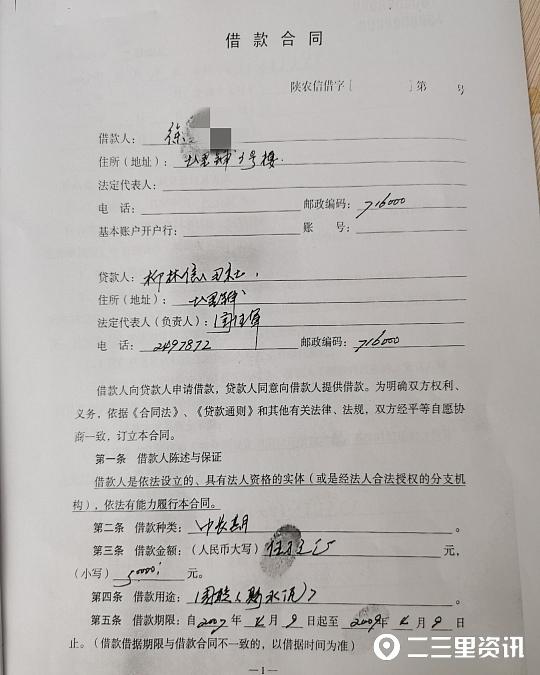 借款合同
陕农信借字[ ]第 号
借款人：徐
住所（地址）：七里铺 号楼
法定代表人：
电 话： 邮政编码：716000
基本账户开户行： 账 号：
贷款人：柳林信用社
住所（地址）：七里铺
法定代表人（负责人）：
电 话：2497872 邮政编码：716000
借款人向贷款人申请借款，贷款人同意向借款人提供借款。为明确双方权利、
义务，依据《合同法》、《贷款通则》和其他有关法律、法规，双方经平等自愿协
商一致，订立本合同。
第一条 借款人陈述与保证
借款人是依法设立的、具有法人资格的实体（或是经法人合法授权的分支机
构），依法有能力履行本合同。
第二条 借款种类：中长期。
第三条 借款金额：（人民币大写） 元，
（小写）50000元。
第四条 借款用途： 。
第五条 借款期限：自2007年 月9日起至2009年 月9日
止。（借款借据期限与借款合同不一致的，以借据时间为准）
—1—
二三里资讯